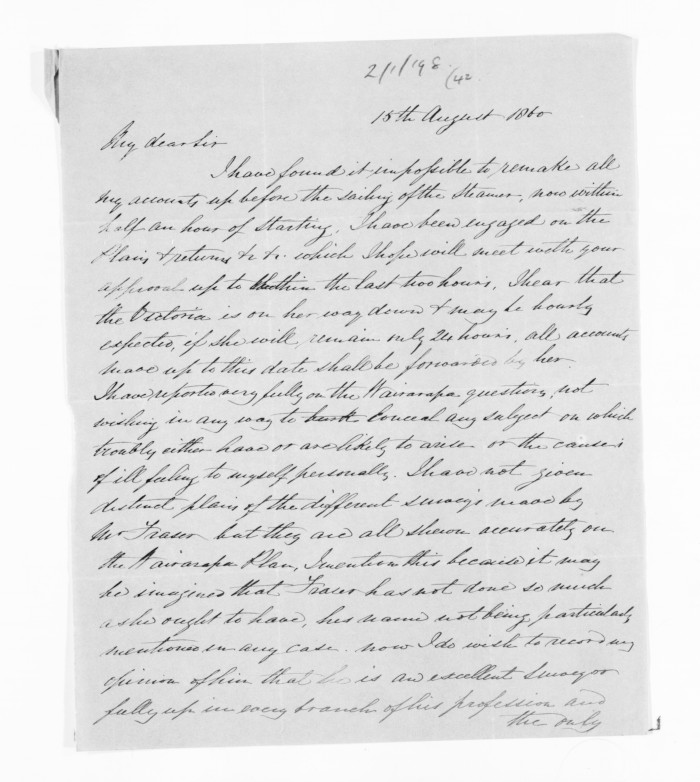 2/1/198. (42
15th August 1860
My dear Sir
I have found it impossible to remake all
my accounts up before the sailing of the Steamer, now within
half an hour of starting. I have been engaged on the
Plans & returns &c &c. which I hope will meet with your
approval up to within the last two hours. I hear that
the Victoria is on her way down & may be hourly
expected, if she will remain only 24 hours, all accounts
made up to this date shall be forwarded by her.
I have reported very fully on the Wairarapa question, not
wishing in any way to Conceal any subject on which
trouble, either have or are likely to arise or the causes
of ill feeling to myself personally. I have not given
distinct plans of the different surveys made by
Mr Fraser but they are all shewn accurately on
the Wairarapa Plan, I mention this because it may
be imagined that Fraser has not done so much
as he ought to have, his name not being particularly
mentioned in any case. now I do wish to record my
opinion of him that he is an excellent Surveyor
fully up in every branch of his profession and
the only